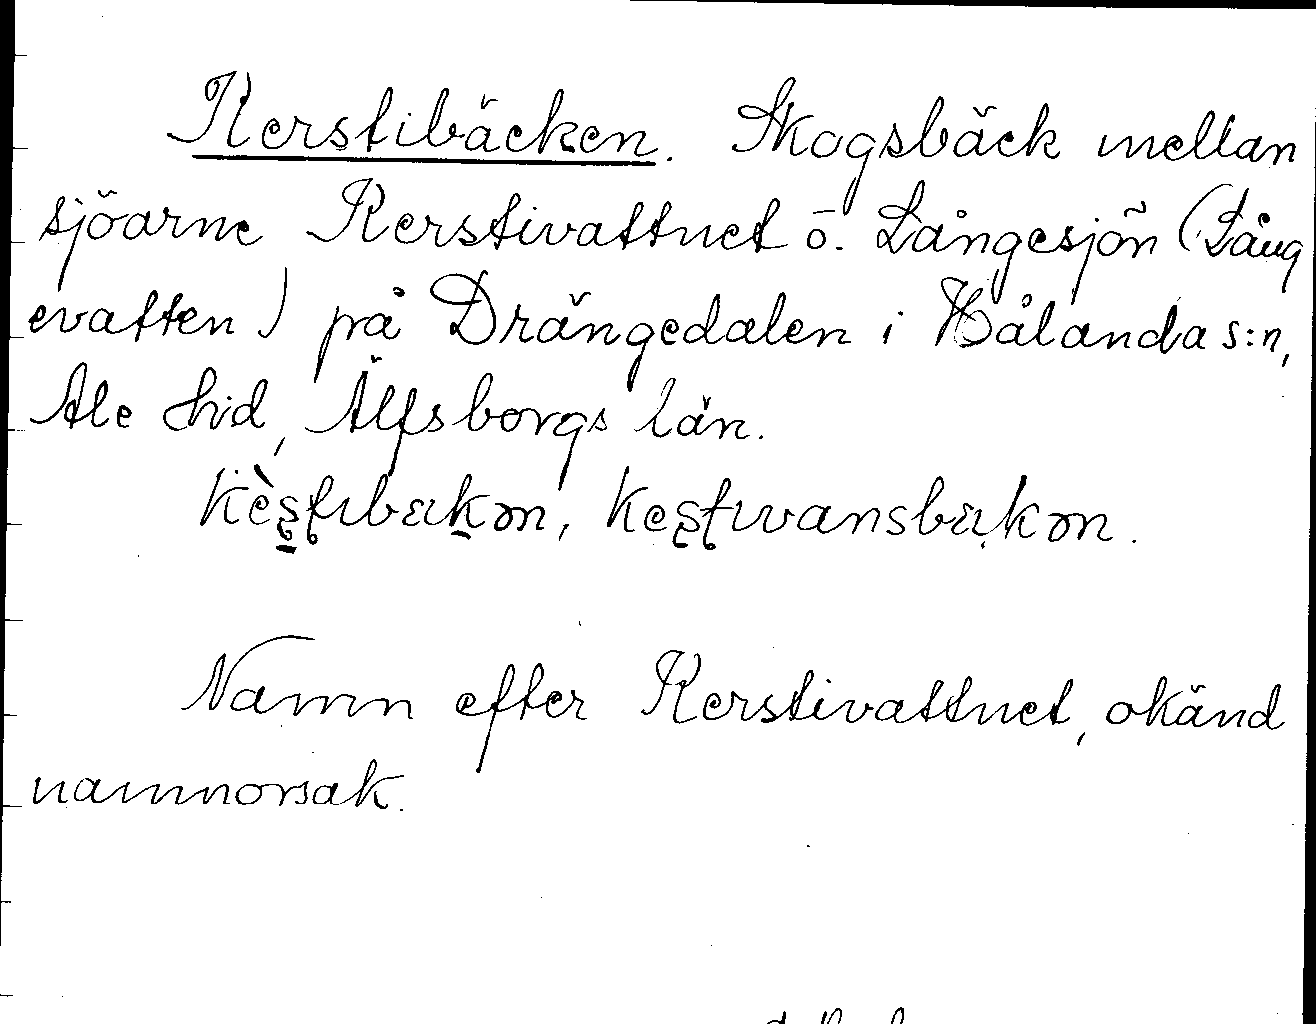 Kerstibäcken. Skogsbäck mellan
sjöarne Kerstivattnet o. Långesjön (Lång
evatten) på Drängedalen i Hålanda s:n,
Ale hd, Älfsborgs län.
Kèʂʈıbækən, Keʂʈıvansbækən.
Namn efter Kerstivattnet, okänd
namnorsak.